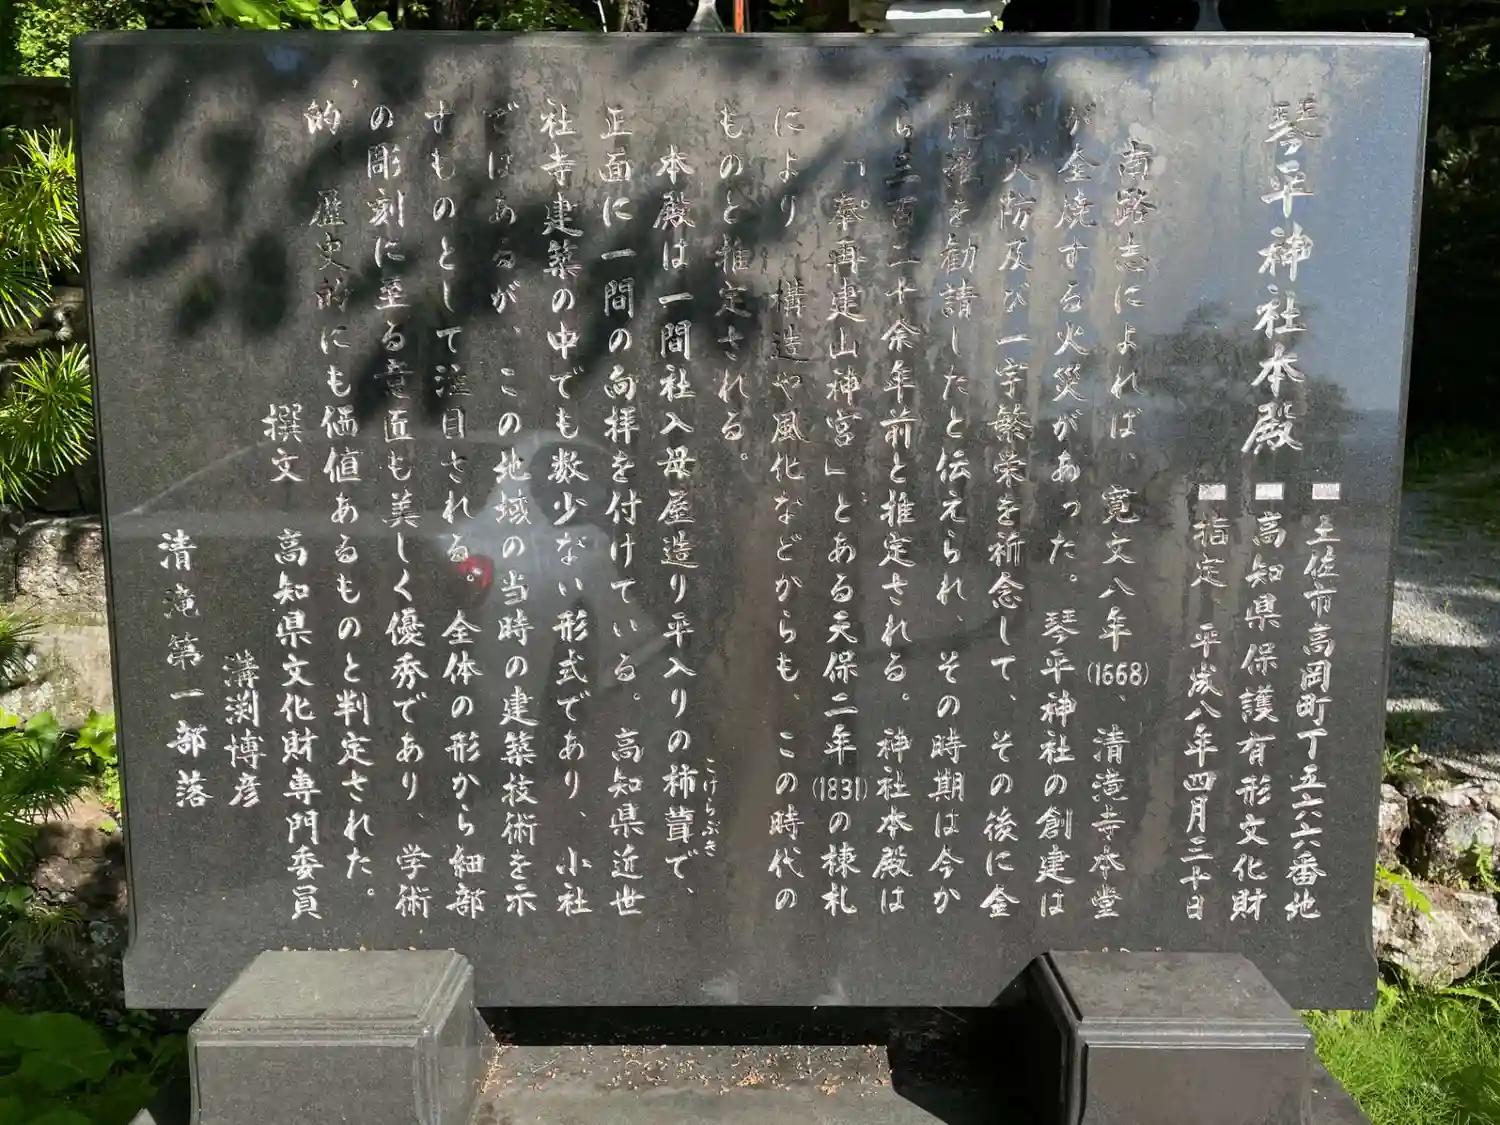 琴平神社本殿
■土佐市高岡町丁五六六番地
■高知県保護有形文化財
■指定 平成八年四月三十日
南路志によれば、寛文八年(1668)、清滝寺本堂
が全焼する火災があった。琴平神社の創建は
火防及び一宇繁栄を祈念して、その後に金
毘羅を勧請したと伝えられ、その時期は今か
ら三百二十余年前と推定される。神社本殿は
「奉再建山神宮」とある天保二年(1831)の棟札
により、構造や風化などからも、この時代の
ものと推定される。
本殿は一間社入母屋造り平入りの柿葺で、
こけらぶき
正面に一間の向拝を付けている。高知県近世
社寺建築の中でも数少ない形式であり、小社
ではあるが、この地域の当時の建築技術を示
すものとして注目される。全体の形から細部
の彫刻に至る意匠も美しく優秀であり、学術
的、歴史的にも価値あるものと判定された。
撰文 高知県文化財専門委員
溝渕博彦
清滝第一部落